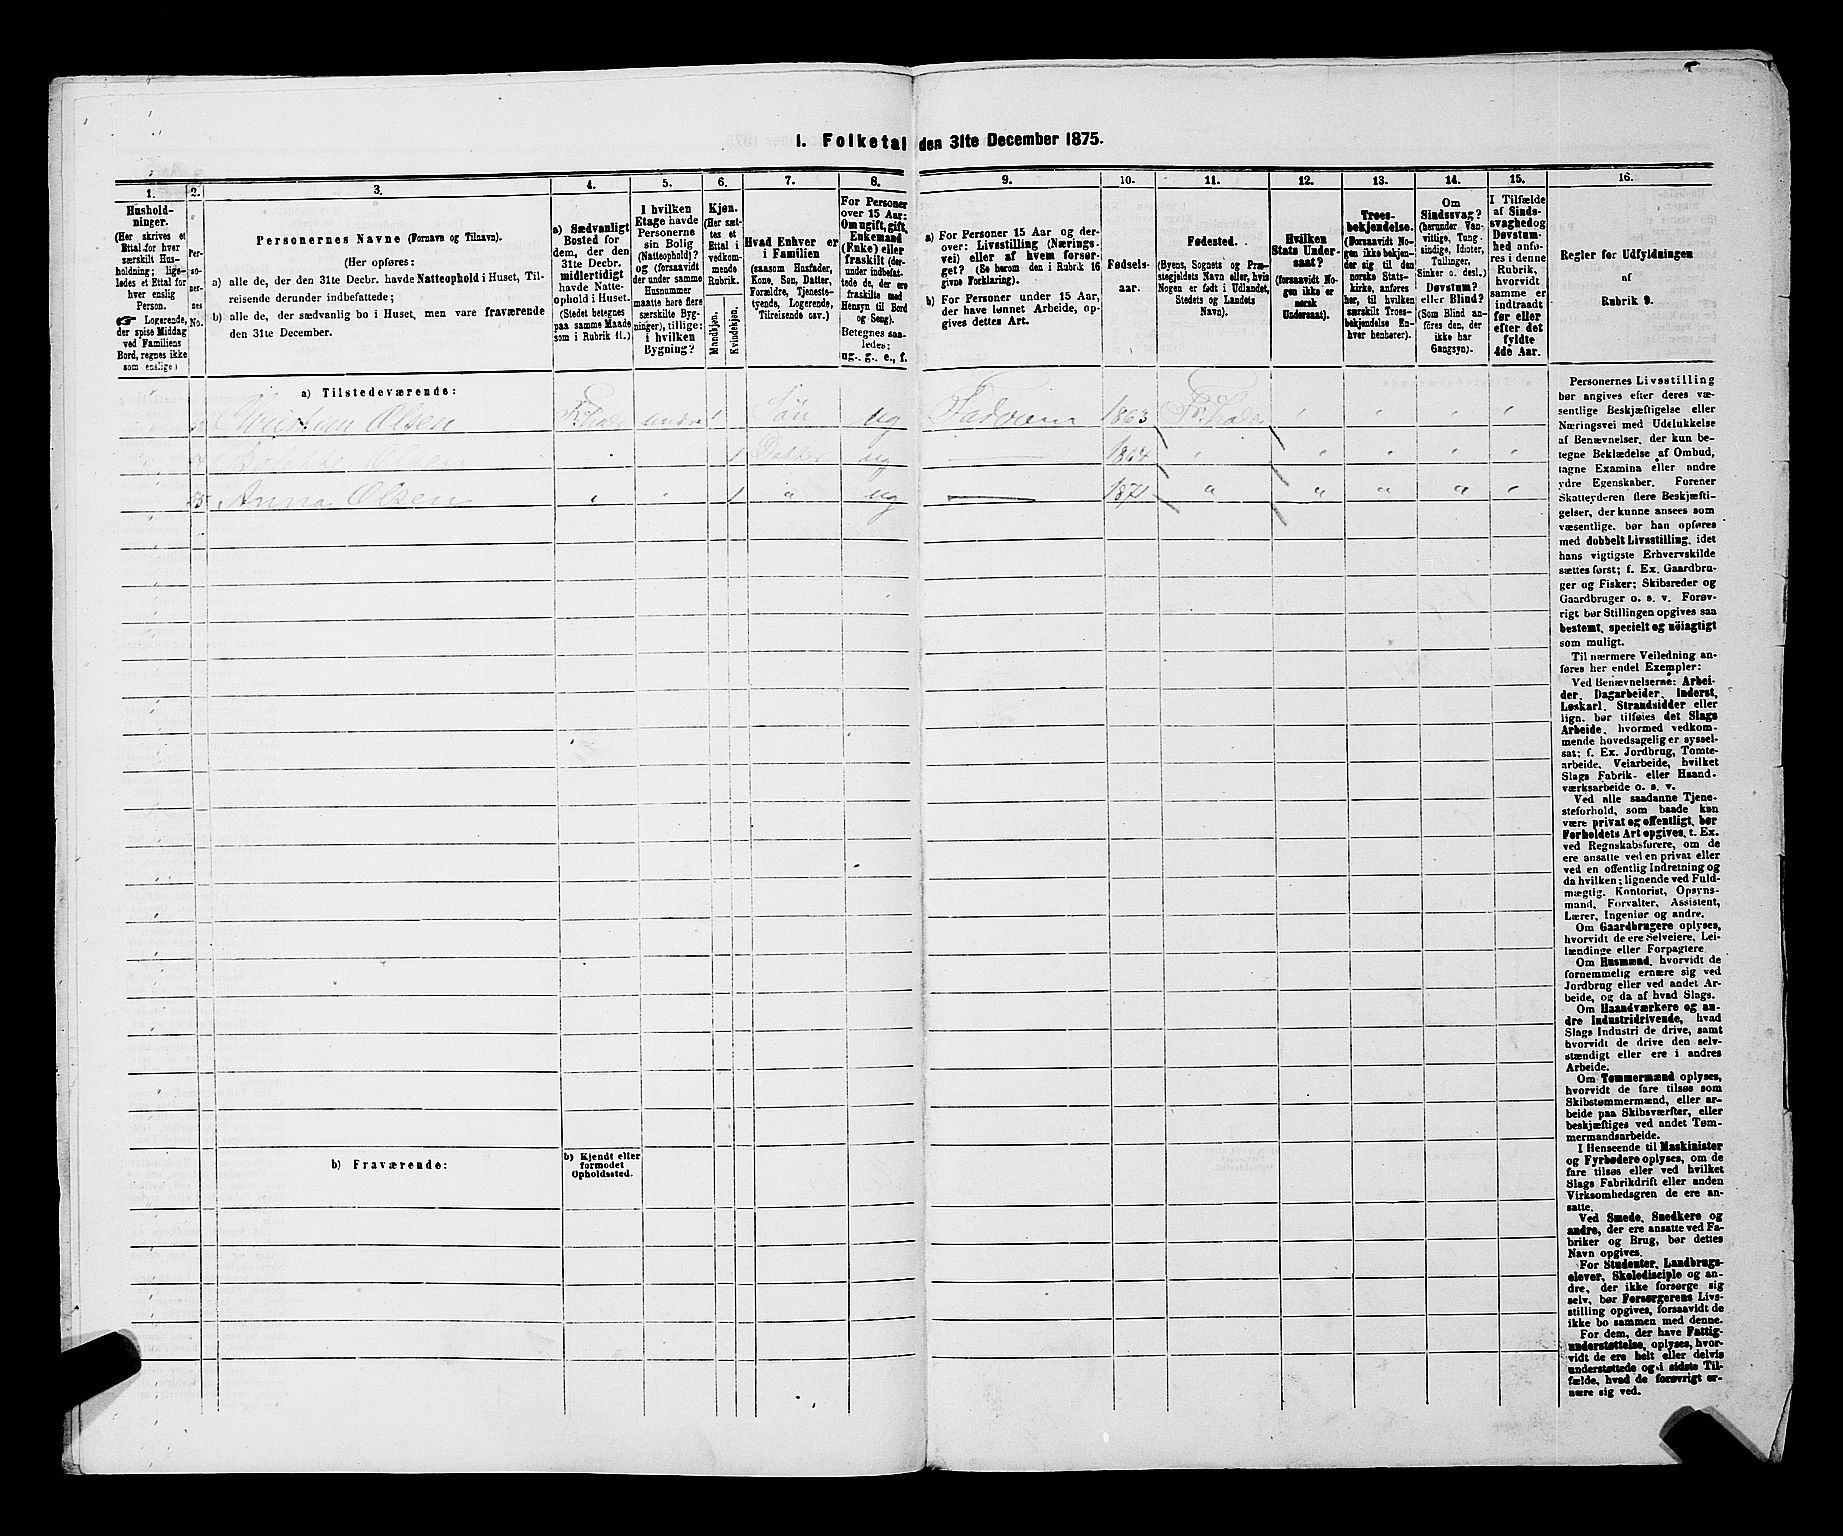 I. Folketal den 31te December 1875.
1.
Hushold-
ninger.
(Her skrives et
Ettal for hver
særskilt Hus-
holdning; lige-
ledes et Ettal for
hver enslig
Person.
☞ Logerende,
der spise Middag
ved Familiens
Bord, regnes ikke
som enslige)
2.
Per-
so-
ner-
nes
No.
3.
Personernes Navne (Fornavn og Tilnavn).
(Her opføres:
a) alle de, der den 31te Decbr. havde Natteophold i Huset, Til-
reisende derunder indbefattede;
b) alle de, der sædvanlig bo i Huset, men vare fraværende
den 31te December.
4.
a) Sædvanligt
Bosted for
dem, der den
31te Decbr.
midlertidigt
havde Natte-
ophold i Huset.
(Stedet betegnes
paa samme Maade
som i Rubrik 11.)
5.
I hvilken
Etage havde
Personerne
sin Bolig
(Natteophold)?
og (forsaavidt
der under samme
Husnummer
maatte høre flere
særskilte Byg-
ninger), tillige:
i hvilken
Bygning?
6.
Kjøn.
(Her sæt-
tes et
Ettal i
vedkom-
mende
Rubrik.
Mandkjøn.
Kvindekjøn.
7.
Hvad Enhver er
i Familien
(saasom Husfader,
Kone, Søn, Datter,
Forældre, Tjeneste-
tyende, Logerende,
Tilreisende osv.)
8.
For Personer
over 15 Aar:
Om ugift, gift,
Enkemand
(Enke) eller
fraskilt (der-
under indbefat-
tede de, der ere
fraskilte med
Hensyn til Bord
og Seng).
Betegnes saa-
ledes:
ug., g., e., f.
9.
a) For Personer 15 Aar og der-
over: Livsstilling (Nærings-
vei) eller af hvem forsør-
get? (Se herom den i Rubrik 16
givne Forklaring).
b) For Personer under 15 Aar,
der have lønnet Arbeide, op-
gives dettes Art.
10.
Fødsels-
aar.
11.
Fødested.
(Byens, Sognets og Præ-
stegjeldets Navn eller, hvis
Nogen er født i Udlandet,
Stedets og Landets
Navn).
12.
Hvilken
Stats Under-
saat?
(forsaavidt No-
gen ikke er
norsk
Undersaat).
13.
Troes-
bekjendelse.
(Forsaavidt No-
gen ikke bekjen-
der sig til den
norske Stats-
kirke, anføres
her, til hvilken
særskilt Troes-
bekjendelse En-
hver henhører).
14.
Om
Sindssvag?
(herunder Van-
vittige, Tung-
sindige, Idioter,
Tullinger,
Sinker o. desl.)
Døvstum?
eller Blind?
(Som Blind an-
føres den, der
ikke har
Gangsyn).
15.
I Tilfælde
af Sinds-
svaghed og
Døvstum-
hed anfø-
res i denne
Rubrik,
hvorvidt
samme er
indtraadt
før eller
efter det
fyldte
4de Aar.
16.
Regler for Udfyldningen
af
Rubrik 9.
a) Tilstedeværende:
Christian Olsen 1 Søn ug 1863
Olsen 1 Datter ug 1864 " " " " "
Anna Olsen " " 1 " ug 1871 " " " " "
b) Fraværende:
b) Kjendt eller
formodet
Opholdssted.
Personernes Livsstilling
bør angives efter deres væ-
sentlige Beskjæftigelse eller
Næringsvei med Udelukkelse
af Benævnelser, der kun be-
tegne Beklædelse af Ombud,
tagne Examina eller andre
ydre Egenskaber. Forener
Skatteyderen flere Beskjæfti-
gelser, der kunne ansees som
væsentlige, bør han opføres
med dobbelt Livsstilling, idet
hans vigtigste Erhvervskilde
sættes først; f. Ex. Gaardbru-
ger og Fisker; Skibsreder og
Gaardbruger o. s. v. Forøv-
rigt bør Stillingen opgives saa
bestemt, specielt og nöiagtigt
som muligt.
Til nærmere Veiledning an-
føres her endel Exempler:
Ved Benævnelserne: Arbei-
der, Dagarbeider, Inderst,
Løskarl, Strandsidder eller
lign. bør tilføies det Slags
Arbeide, hvormed vedkom-
mende hovedsagelig er syssel-
sat; f. Ex. Jordbrug, Tomte-
arbeide, Veiarbeide, hvilket
Slags Fabrik- eller Haand-
værksarbeide o. s. v.
Ved alle saadanne Tjene-
steforhold, som baade kan
være privat og offentligt, bør
Forholdets Art opgives, t. Ex.
ved Regnskabsførere, om de
ere ansatte ved en privat eller
ved en offentlig Indretning og
da hvilken; lignende ved Fuld-
mægtig, Kontorist, Opsyns-
mand, Forvalter, Assistent,
Lærer, Ingeniør og andre.
Om Gaardbrugere oplyses,
hvorvidt de ere Selveiere, Lei-
lændinge eller Forpagtere.
Om Husmænd, hvorvidt de
fornemmelig ernære sig ved
Jordbrug eller ved andet Ar-
beide, og da af hvad Slags.
Om Haandværkere og an-
dre Industridrivende, hvad
Slags Industri de drive, samt
hvorvidt de drive den selv-
stændigt eller ere i andres
Arbeide.
Om Tømmermænd oplyses,
hvorvidt de fare tilsøs som
Skibstømmermænd, eller ar-
beide paa Skibsværfter, eller
beskjæftiges ved andet Tøm-
mermandsarbeide.
I Henseende til Maskinister
og Fyrbødere oplyses, om de
fare tilsøs eller ved hvilket
Slags Fabrikdrift eller anden
Virksomhedsgren de ere an-
satte.
Ved Smede, Snedkere og
andre, der ere ansatte ved Fa-
briker og Brug, bør dettes
Navn opgives.
For Studenter, Landbrugs-
elever, Skoledisciple og an-
dre, der ikke forsørge sig
selv, bør Forsørgerens Livs-
stilling opgives, forsaavidt de
ikke bo sammen med denne.
For dem, der have Fattig-
understøttelse, oplyses, hvor-
vidt de ere helt eller delvis
understøttede og i sidste Til-
fælde, hvad de forøvrigt er-
nære sig ved.